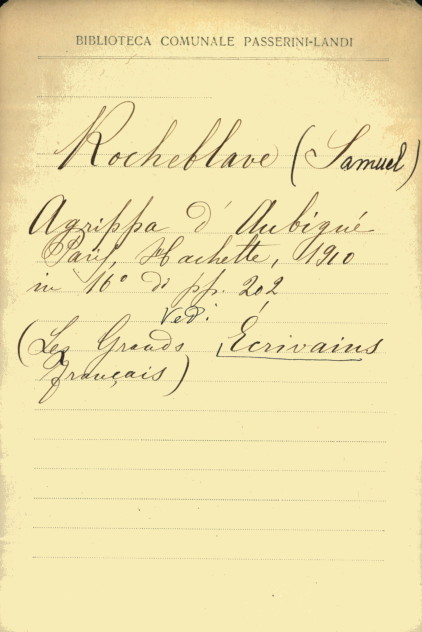 BIBLIOTECA COMUNALE PASSERINI-LANDI
Rocheblave (Samuel)
Agrippa d'Aubigné
Paris, Hachette, 1910
in 16° di pp. 202
Vedi:
(Les Grands Écrivains
français)